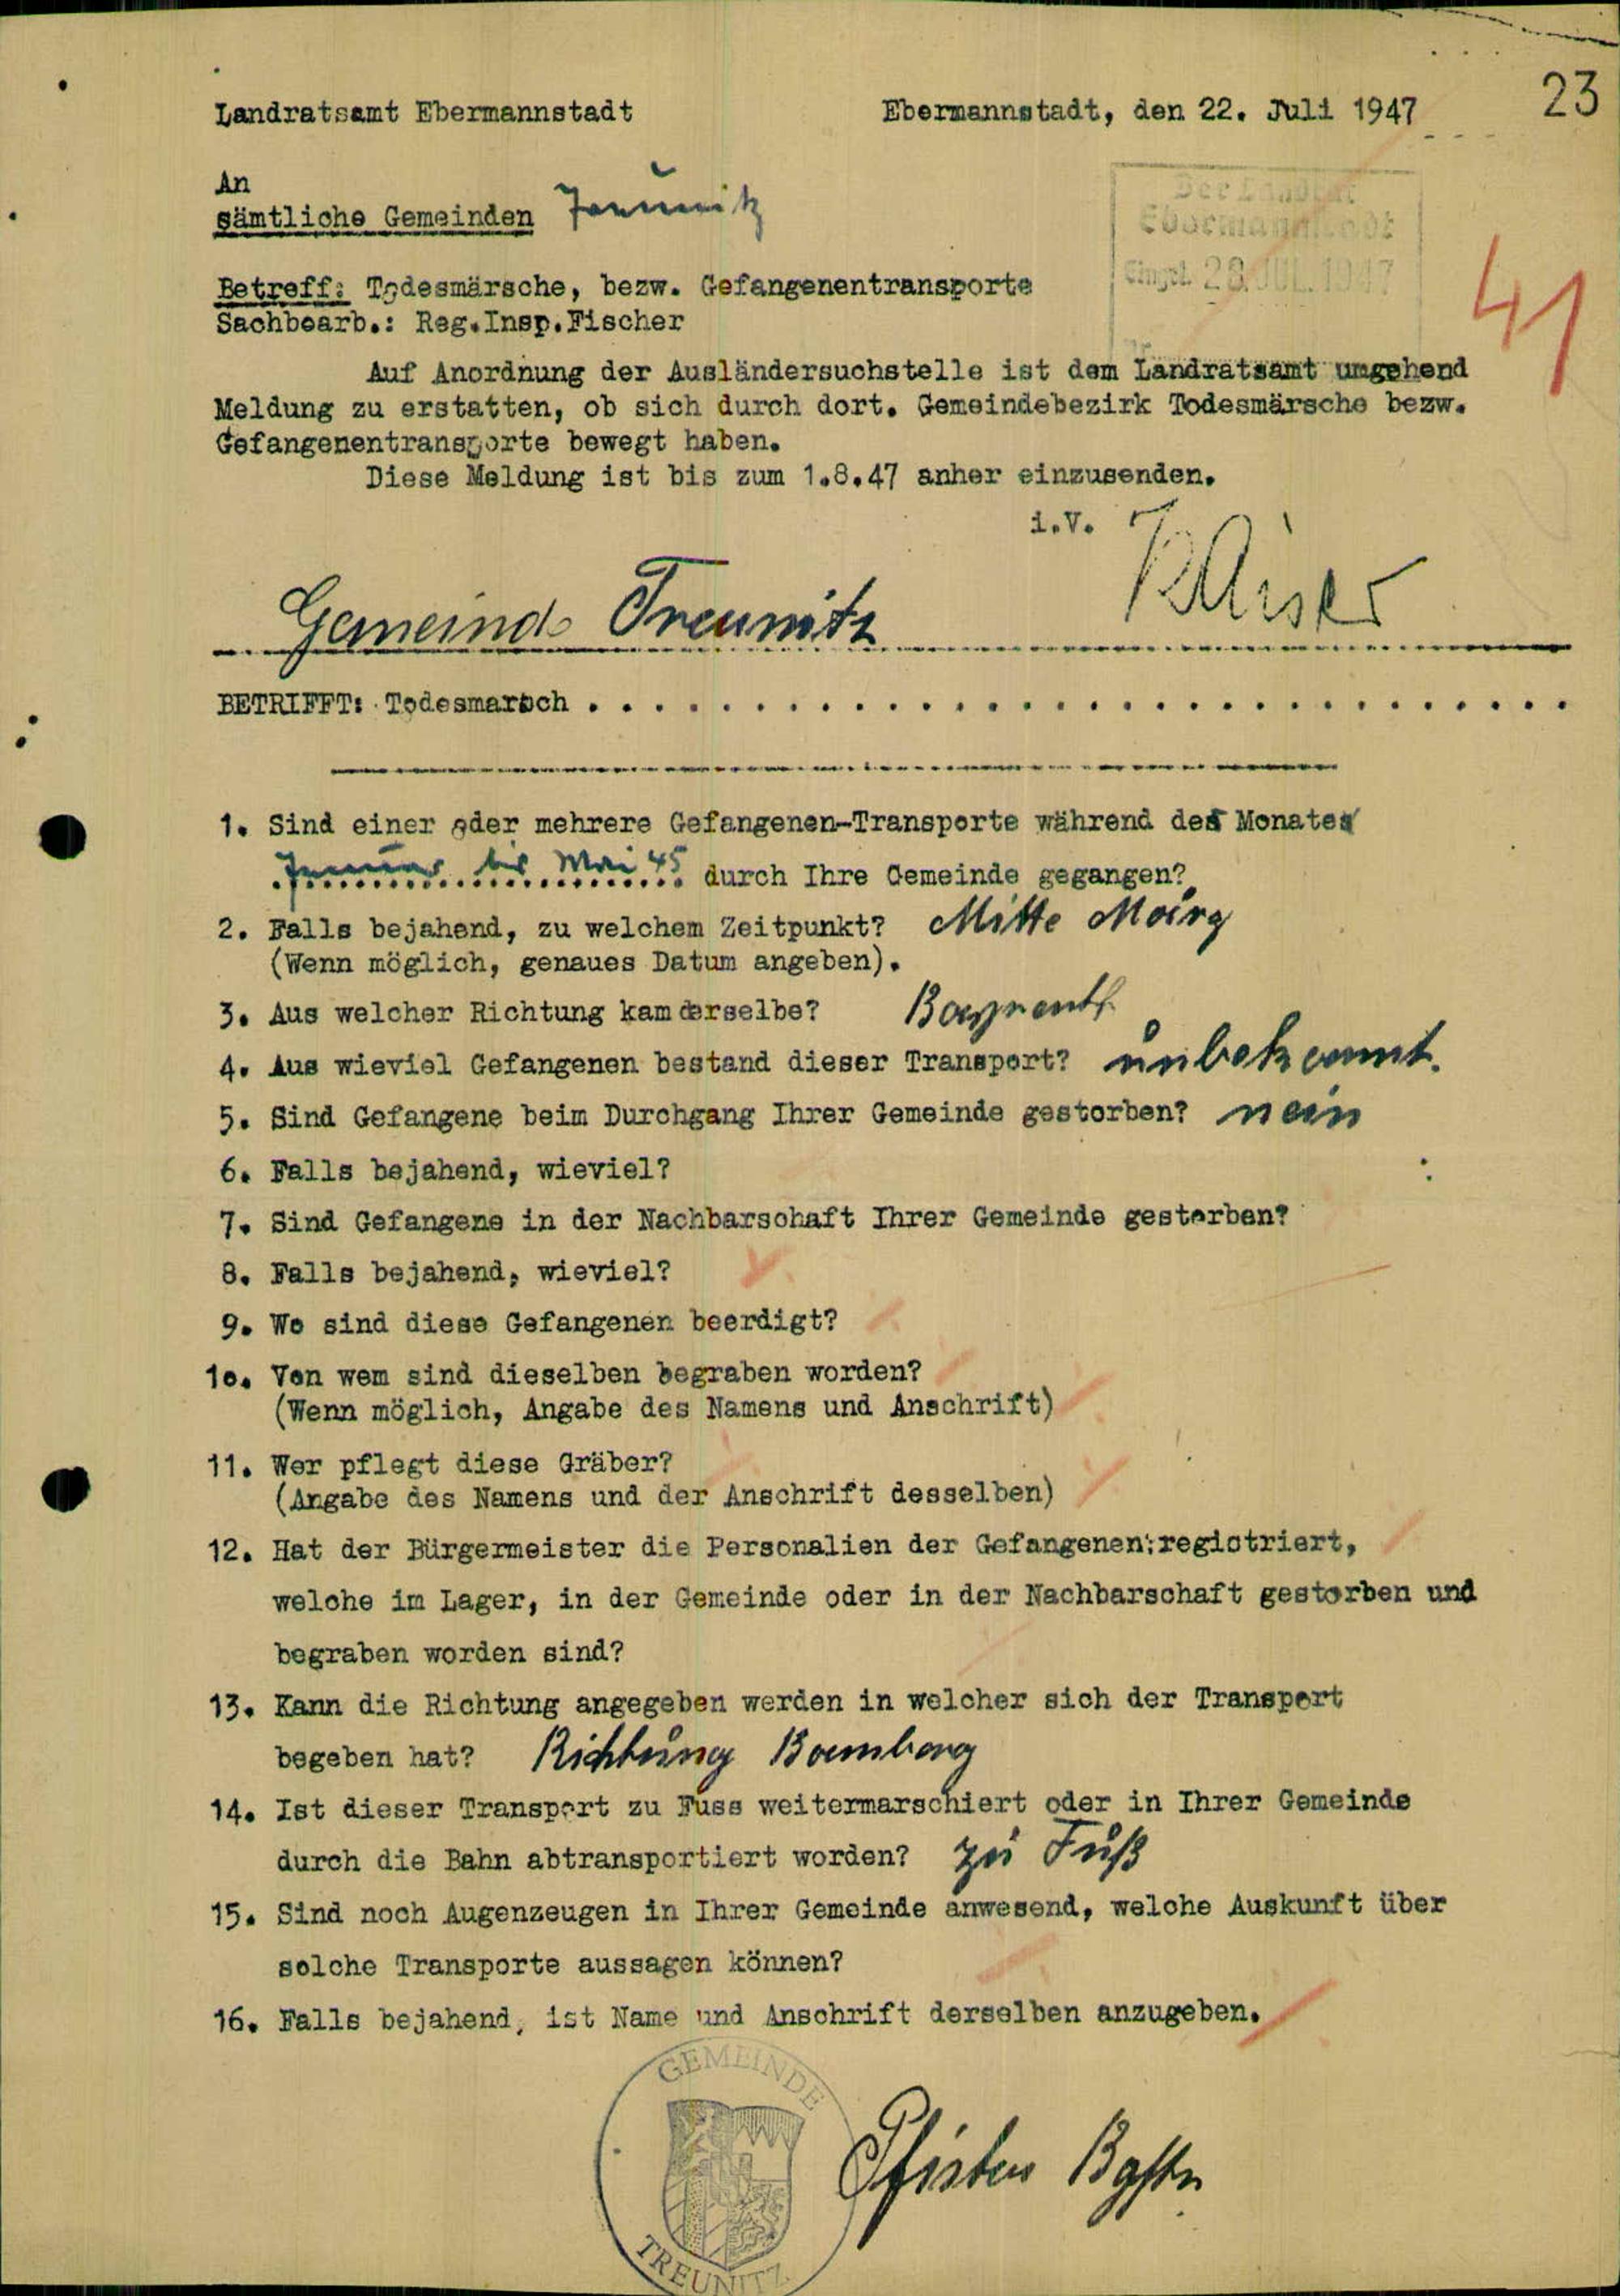 23
Landratsamt Ebermannstadt Ebermannstadt, den 22. Juli 1947
An
sämtliche Gemeinden Treunitz
Der Landrat
Ebermannstadt
Eingel. 28. JUL. 1947
41
Betreff: Todesmärsche, bezw. Gefangenentransporte
Sachbearb.: Reg.Insp.Fischer
Auf Anordnung der Ausländersuchstelle ist dem Landratsamt umgehend
Meldung zu erstatten, ob sich durch dort. Gemeindebezirk Todesmärsche bezw.
Gefangenentransporte bewegt haben.
Diese Meldung ist bis zum 1.8.47 anher einzusenden.
i.V.
Gemeinde Treunitz
BETRIFFT: Todesmarsch . . . . . . . . . . . . . . . . . . . . . . . . . . . . . .
1. Sind einer oder mehrere Gefangenen-Transporte während des Monates
Januar bis Mai 45 durch Ihre Gemeinde gegangen?
2. Falls bejahend, zu welchem Zeitpunkt? Mitte März
(Wenn möglich, genaues Datum angeben).
3. Aus welcher Richtung kam derselbe? Bayreuth
4. Aus wieviel Gefangenen bestand dieser Transport? unbekannt.
5. Sind Gefangene beim Durchgang Ihrer Gemeinde gestorben? nein
6. Falls bejahend, wieviel?
7. Sind Gefangene in der Nachbarschaft Ihrer Gemeinde gestorben?
8. Falls bejahend, wieviel?
9. Wo sind diese Gefangenen beerdigt?
10. Von wem sind dieselben begraben worden?
(Wenn möglich, Angabe des Namens und Anschrift)
11. Wer pflegt diese Gräber?
(Angabe des Namens und der Anschrift desselben)
12. Hat der Bürgermeister die Personalien der Gefangenen registriert,
welche im Lager, in der Gemeinde oder in der Nachbarschaft gestorben und
begraben worden sind?
13. Kann die Richtung angegeben werden in welcher sich der Transport
begeben hat? Richtung Bamberg
14. Ist dieser Transport zu Fuss weitermarschiert oder in Ihrer Gemeinde
durch die Bahn abtransportiert worden? zu Fuß
15. Sind noch Augenzeugen in Ihrer Gemeinde anwesend, welche Auskunft über
solche Transporte aussagen können?
16. Falls bejahend, ist Name und Anschrift derselben anzugeben.
GEMEINDE
TREUNITZ
Pfister